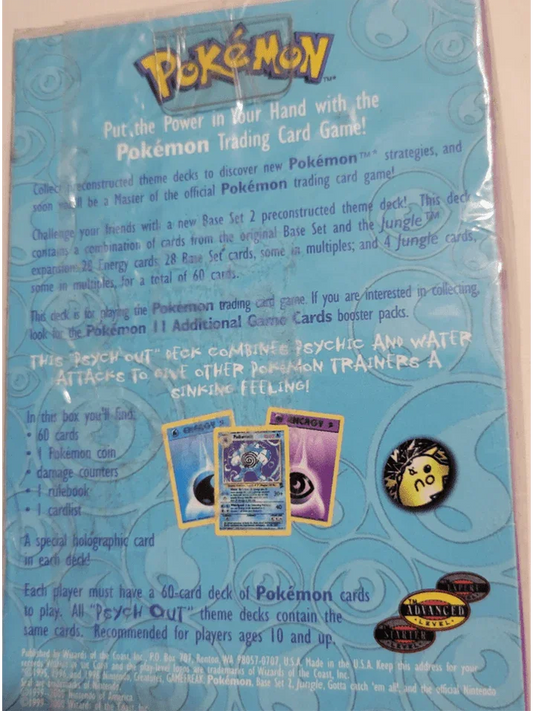 POKéMON™
Put the Power in Your Hand with the
Pokémon Trading Card Game!
Collect preconstructed theme decks to discover new Pokémon™ strategies, and
soon you'll be a Master of the official Pokémon trading card game!
Challenge your friends with a new Base Set 2 preconstructed theme deck! This deck
contains a combination of cards from the original Base Set and the Jungle™
expansion: 28 Energy cards; 28 Base Set cards, some in multiples; and 4 Jungle cards,
some in multiples, for a total of 60 cards.
This deck is for playing the Pokémon trading card game. If you are interested in collecting,
look for the Pokémon 11 Additional Game Cards booster packs.
THIS "PSYCH OUT" DECK COMBINES PSYCHIC AND WATER
ATTACKS TO GIVE OTHER POKéMON TRAINERS A
SINKING FEELING!
In the box you'll find:
• 60 cards
• 1 Pokémon coin
• damage counters
• 1 rulebook
• 1 cardlist
A special holographic card
in each deck!
ENERGY
ENERGY
NO
Each player must have a 60-card deck of Pokémon cards
to play. All "PSYCH OUT" theme decks contain the
same cards. Recommended for players ages 10 and up.
EXPERT
ADVANCED
LEVEL
STARTER
LEVEL
Published by Wizards of the Coast, Inc., P.O. Box 707, Renton, WA 98057-0707, U.S.A. Made in the U.S.A. Keep this address for your
records. Wizards of the Coast and the play-level logos are trademarks of Wizards of the Coast, Inc.
©1995, 1996, and 1998 Nintendo, Creatures, GAMEFREAK. Pokémon, Base Set 2, Jungle, Gotta catch 'em all!, and the official Nintendo
Seal are trademarks of Nintendo.
©1999, 2000 Nintendo of America.
©1995-2000 Wizards of the Coast, Inc.